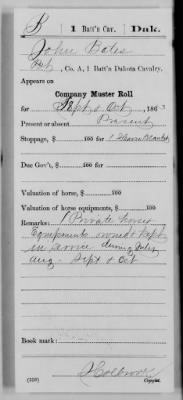 B | 1 Batt'n Cav. | Dak.
John Bates
Pvt, Co. A, 1 Batt'n Dakota Cavalry.
Appears on
Company Muster Roll
for Sept & Oct, 1863
Present or absent Present
Stoppage, $ 100 for
Due Gov't, $ 100 for
Valuation of horse, $ 100
Valuation of horse equipments, $ 100
Remarks: 1 Private horse
Equipments owned & kept
in service during July
Aug. Sept & Oct
Book mark:
Holbrook
(359) Copyist.